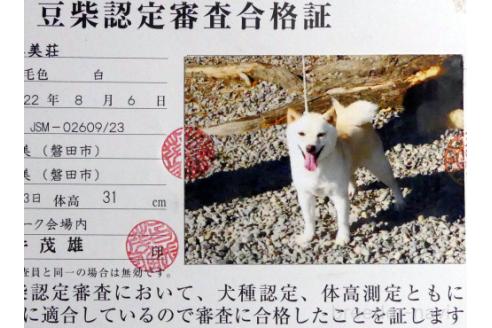 豆柴認定審査合格証
美荘
毛色 白
22 年 8 月 6 日
JSM-02609/23
美 (磐田市)
美 (磐田市)
3日 体高 31 cm
ーク会場内
茂雄 印
査員と同一の場合は無効です。
認定審査において、犬種認定、体高測定ともに
に適合しているので審査に合格したことを証明します